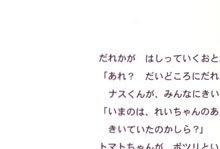 だれかが　はしっていくおと
「あれ？　だいどころにだれ
　ナスくんが、みんなにきい
「いまのは、れいちゃんのあ
　きいていたのかしら？」
トマトちゃんが、ポツリとい